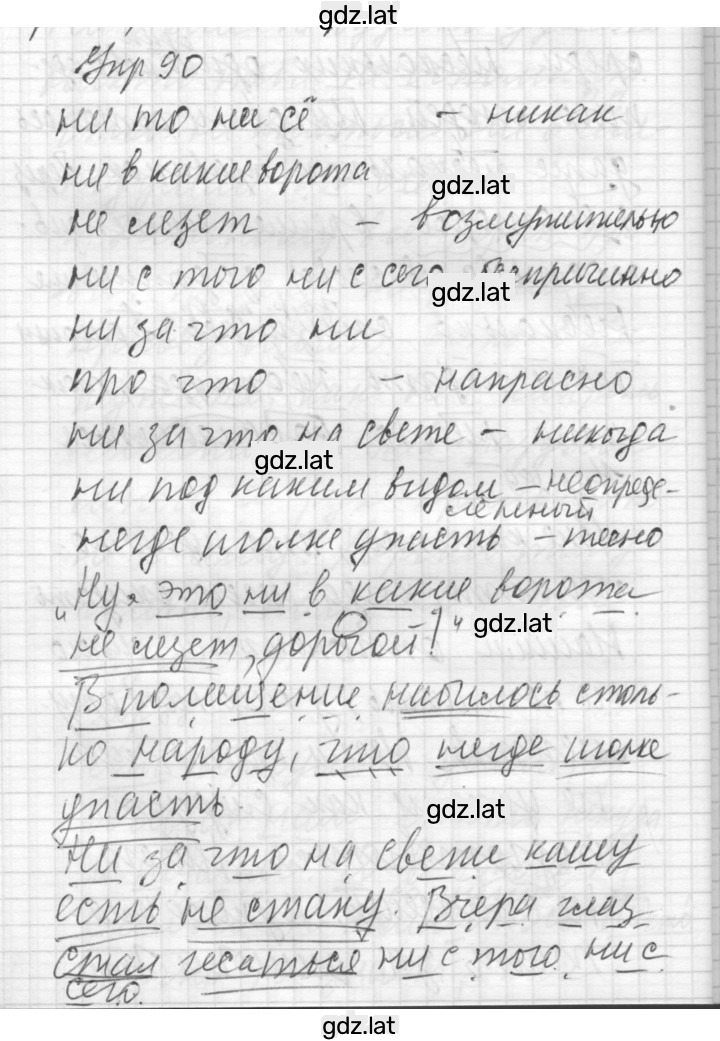 gdz.lat
Упр 90
ни то ни сё - никак
ни в какие ворота
gdz.lat
не лезет - возмутительно
ни с того ни с сего беспричинно
gdz.lat
ни за что ни
про что - напрасно
ни за что на свете - никогда
gdz.lat
ни под каким видом - неопреде-
лённый
негде иголке упасть - тесно
"Ну, это ни в какие ворота
не лезет, дорогой!"
gdz.lat
В помещение набилось столь-
ко народу, что негде иголке
упасть.
gdz.lat
Ни за что на свете кашу
есть не стану. Вчера глаз
стал чесаться ни с того ни с
сего.
gdz.lat